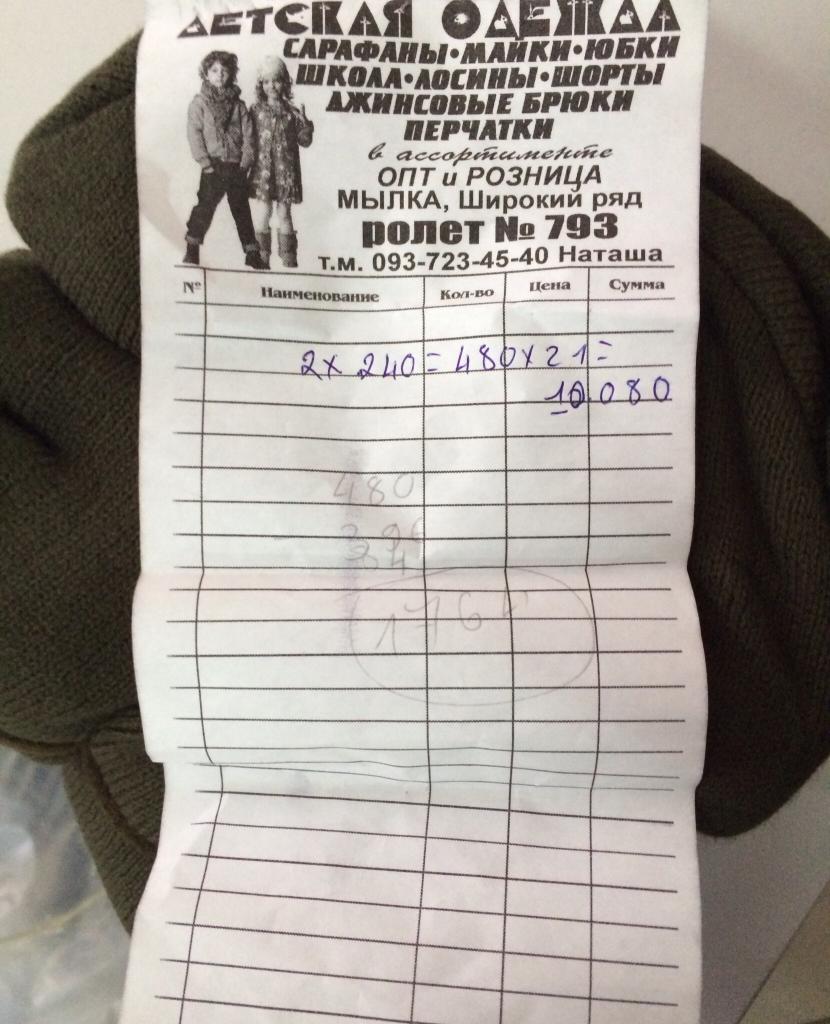 ДЕТСКАЯ ОДЕЖДА
САРАФАНЫ•МАЙКИ•ЮБКИ
ШКОЛА•ЛОСИНЫ•ШОРТЫ
ДЖИНСОВЫЕ БРЮКИ
ПЕРЧАТКИ
в ассортименте
ОПТ и РОЗНИЦА
МЫЛКА, Широкий ряд
ролет № 793
т.м. 093-723-45-40 Наташа
№ Наименование Кол-во Цена Сумма
2 x 240 = 480 x 21 =
10.080
480
176